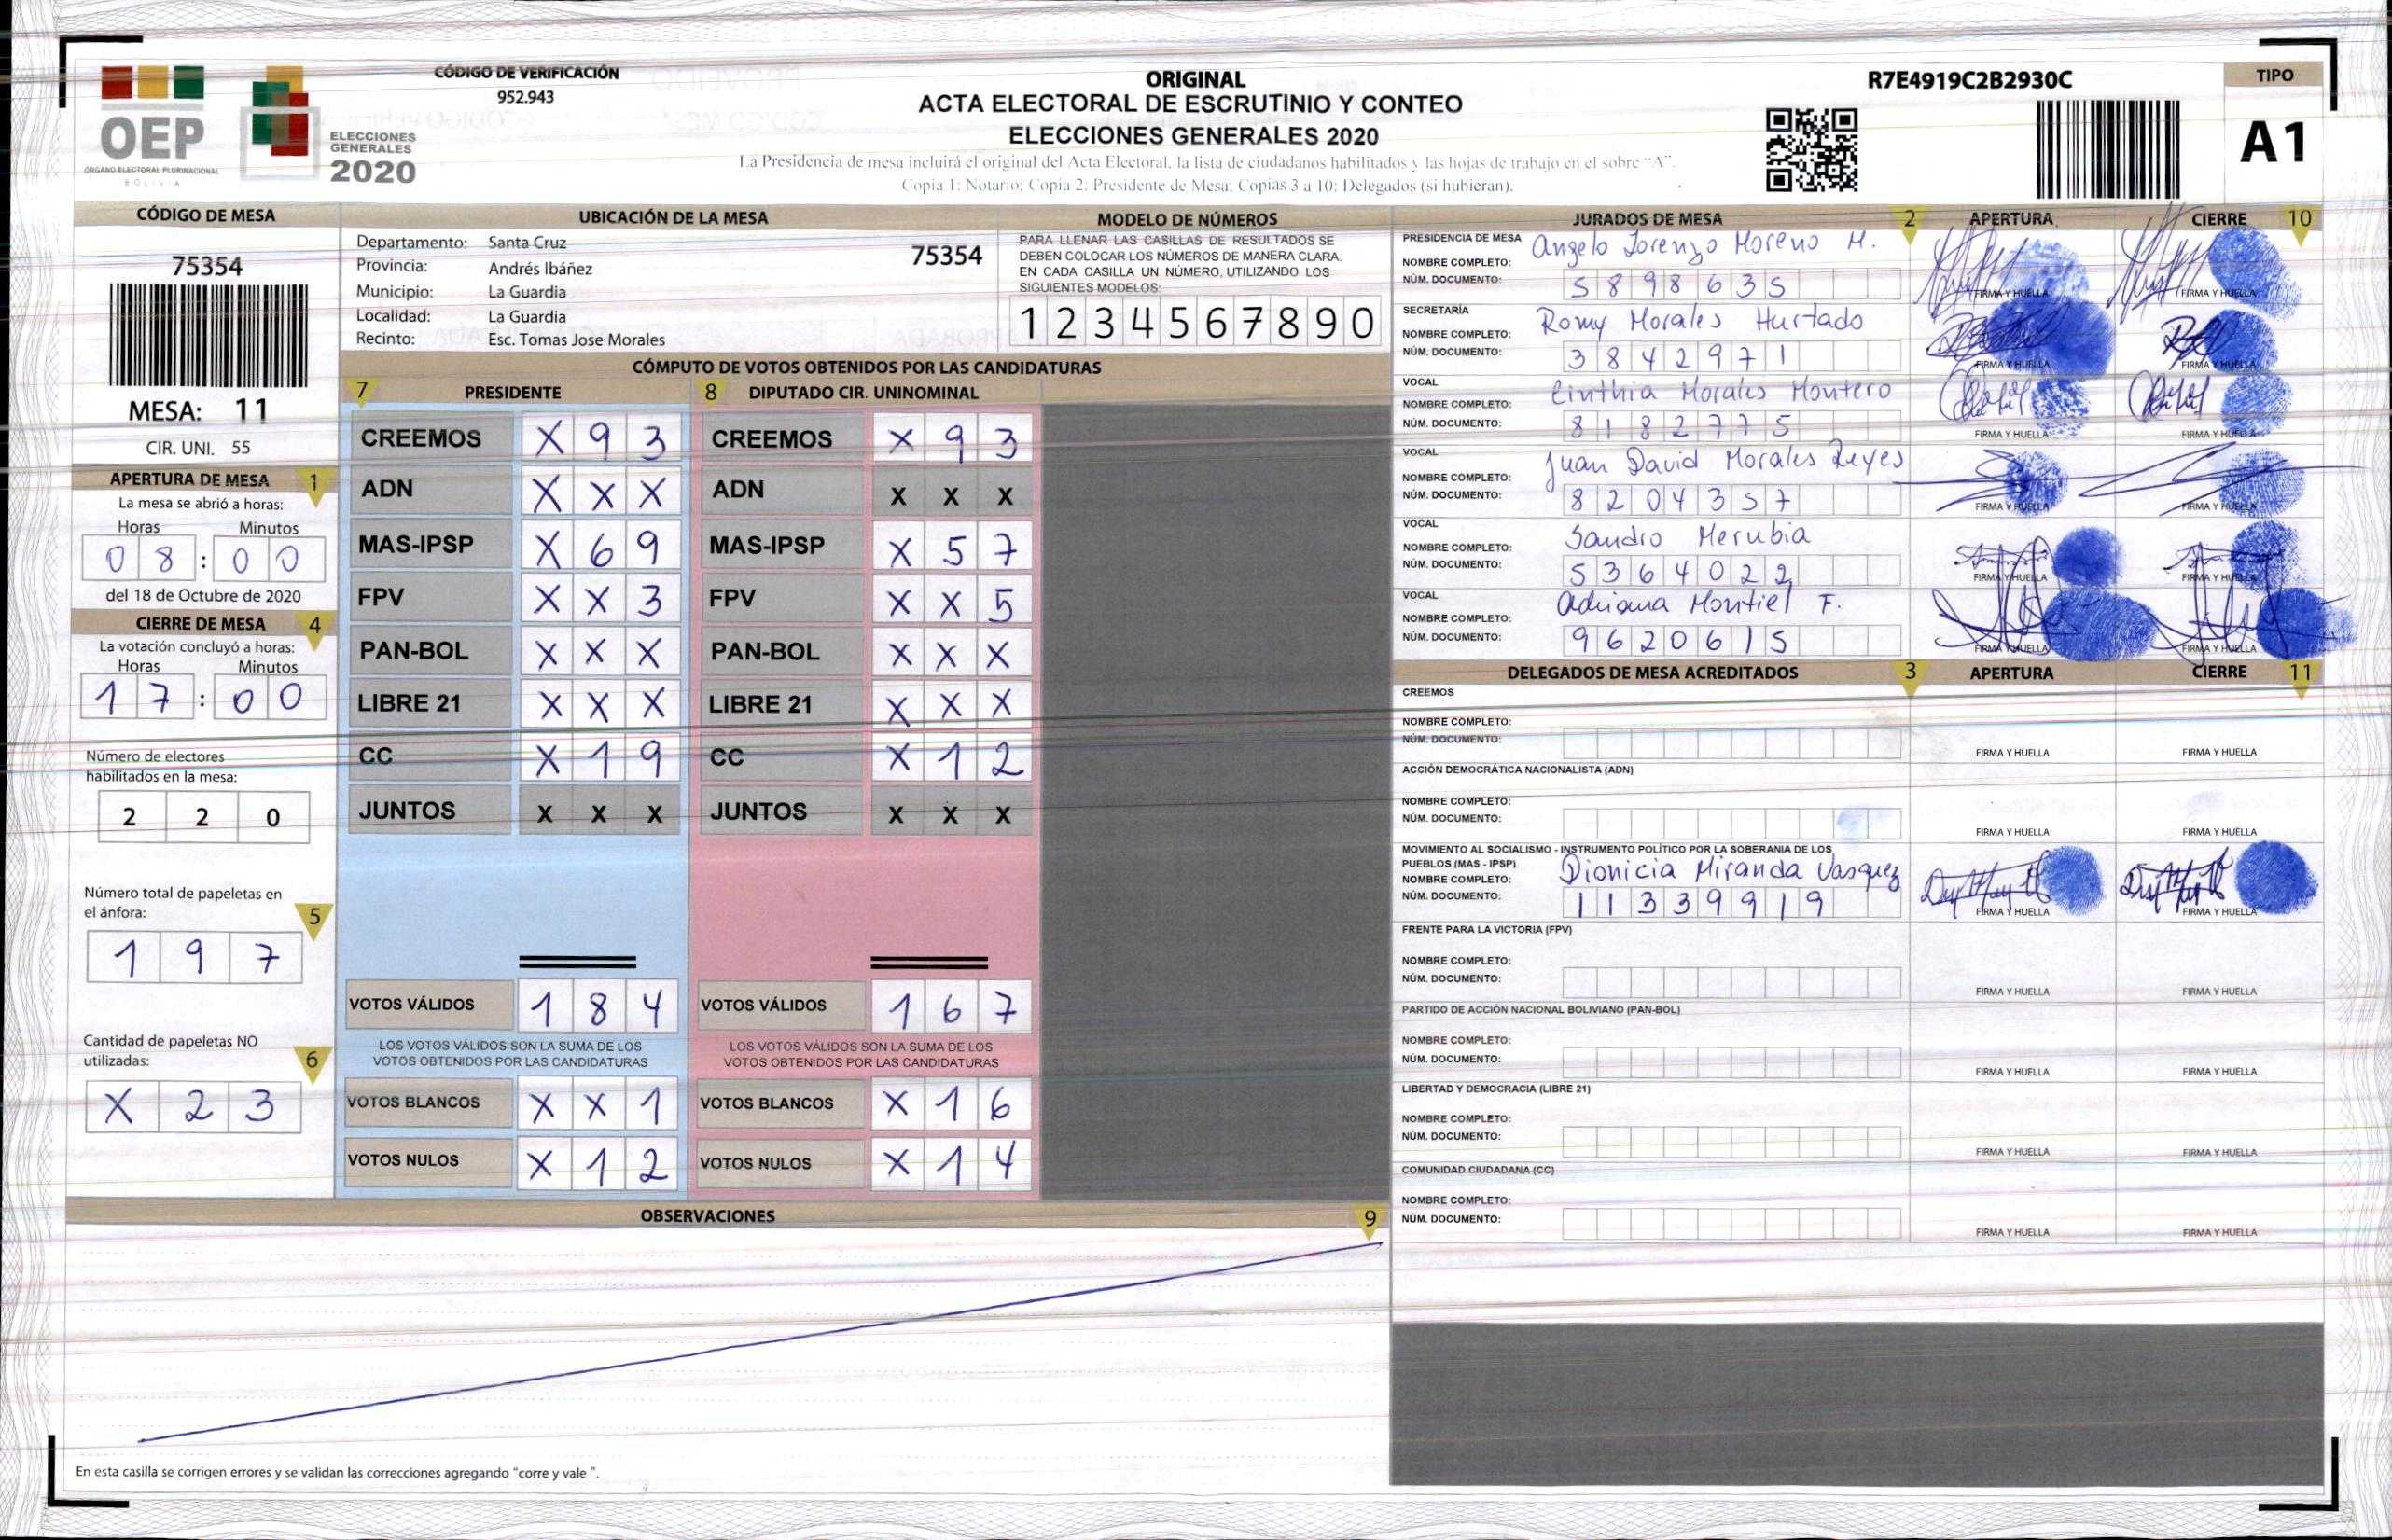 CÓDIGO DE VERIFICACIÓN
952.943
OEP
ÓRGANO ELECTORAL PLURINACIONAL
BOLIVIA
ELECCIONES
GENERALES
2020
ORIGINAL
ACTA ELECTORAL DE ESCRUTINIO Y CONTEO
ELECCIONES GENERALES 2020
La Presidencia de mesa incluirá el original del Acta Electoral, la lista de ciudadanos habilitados y las hojas de trabajo en el sobre "A".
Copia 1: Notario; Copia 2: Presidente de Mesa; Copias 3 a 10: Delegados (si hubieran).
R7E4919C2B2930C
TIPO
A1
CÓDIGO DE MESA
75354
MESA: 11
CIR. UNI. 55
UBICACIÓN DE LA MESA
Departamento: Santa Cruz
Provincia: Andrés Ibáñez
Municipio: La Guardia
Localidad: La Guardia
Recinto: Esc. Tomas Jose Morales
75354
MODELO DE NÚMEROS
PARA LLENAR LAS CASILLAS DE RESULTADOS SE
DEBEN COLOCAR LOS NÚMEROS DE MANERA CLARA.
EN CADA CASILLA UN NÚMERO, UTILIZANDO LOS
SIGUIENTES MODELOS:
1 2 3 4 5 6 7 8 9 0
APERTURA DE MESA 1
La mesa se abrió a horas:
Horas Minutos
0 8 : 0 0
del 18 de Octubre de 2020
CIERRE DE MESA 4
La votación concluyó a horas:
Horas Minutos
1 7 : 0 0
Número de electores
habilitados en la mesa:
2 2 0
Número total de papeletas en
el ánfora: 5
1 9 7
Cantidad de papeletas NO
utilizadas: 6
X 2 3
CÓMPUTO DE VOTOS OBTENIDOS POR LAS CANDIDATURAS
7 PRESIDENTE
CREEMOS X 9 3
ADN X X X
MAS-IPSP X 6 9
FPV X X 3
PAN-BOL X X X
LIBRE 21 X X X
CC X 1 9
JUNTOS X X X
VOTOS VÁLIDOS 1 8 4
LOS VOTOS VÁLIDOS SON LA SUMA DE LOS
VOTOS OBTENIDOS POR LAS CANDIDATURAS
VOTOS BLANCOS X X 1
VOTOS NULOS X 1 2
8 DIPUTADO CIR. UNINOMINAL
CREEMOS X 9 3
ADN X X X
MAS-IPSP X 5 7
FPV X X 5
PAN-BOL X X X
LIBRE 21 X X X
CC X 1 2
JUNTOS X X X
VOTOS VÁLIDOS 1 6 7
LOS VOTOS VÁLIDOS SON LA SUMA DE LOS
VOTOS OBTENIDOS POR LAS CANDIDATURAS
VOTOS BLANCOS X 1 6
VOTOS NULOS X 1 4
OBSERVACIONES 9
En esta casilla se corrigen errores y se validan las correcciones agregando "corre y vale ".
JURADOS DE MESA 2 APERTURA CIERRE 10
PRESIDENCIA DE MESA
NOMBRE COMPLETO: Angelo Lorenzo Moreno M.
NÚM. DOCUMENTO: 5 8 9 8 6 3 5
FIRMA Y HUELLA FIRMA Y HUELLA
SECRETARÍA
NOMBRE COMPLETO: Romy Morales Hurtado
NÚM. DOCUMENTO: 3 8 4 2 9 7 1
FIRMA Y HUELLA FIRMA Y HUELLA
VOCAL
NOMBRE COMPLETO: Cinthia Morales Montero
NÚM. DOCUMENTO: 8 1 8 2 7 7 5
FIRMA Y HUELLA FIRMA Y HUELLA
VOCAL
NOMBRE COMPLETO: Juan David Morales Reyes
NÚM. DOCUMENTO: 8 2 0 4 3 5 7
FIRMA Y HUELLA FIRMA Y HUELLA
VOCAL
NOMBRE COMPLETO: Sandro Merubia
NÚM. DOCUMENTO: 5 3 6 4 0 2 2
FIRMA Y HUELLA FIRMA Y HUELLA
VOCAL
NOMBRE COMPLETO: Adriana Montiel F.
NÚM. DOCUMENTO: 9 6 2 0 6 1 5
FIRMA Y HUELLA FIRMA Y HUELLA
DELEGADOS DE MESA ACREDITADOS 3 APERTURA CIERRE 11
CREEMOS
NOMBRE COMPLETO:
NÚM. DOCUMENTO:
FIRMA Y HUELLA FIRMA Y HUELLA
ACCIÓN DEMOCRÁTICA NACIONALISTA (ADN)
NOMBRE COMPLETO:
NÚM. DOCUMENTO:
FIRMA Y HUELLA FIRMA Y HUELLA
MOVIMIENTO AL SOCIALISMO - INSTRUMENTO POLÍTICO POR LA SOBERANIA DE LOS
PUEBLOS (MAS - IPSP)
NOMBRE COMPLETO: Dionicia Miranda Vasquez
NÚM. DOCUMENTO: 1 1 3 3 9 9 1 9
FIRMA Y HUELLA FIRMA Y HUELLA
FRENTE PARA LA VICTORIA (FPV)
NOMBRE COMPLETO:
NÚM. DOCUMENTO:
FIRMA Y HUELLA FIRMA Y HUELLA
PARTIDO DE ACCIÓN NACIONAL BOLIVIANO (PAN-BOL)
NOMBRE COMPLETO:
NÚM. DOCUMENTO:
FIRMA Y HUELLA FIRMA Y HUELLA
LIBERTAD Y DEMOCRACIA (LIBRE 21)
NOMBRE COMPLETO:
NÚM. DOCUMENTO:
FIRMA Y HUELLA FIRMA Y HUELLA
COMUNIDAD CIUDADANA (CC)
NOMBRE COMPLETO:
NÚM. DOCUMENTO:
FIRMA Y HUELLA FIRMA Y HUELLA